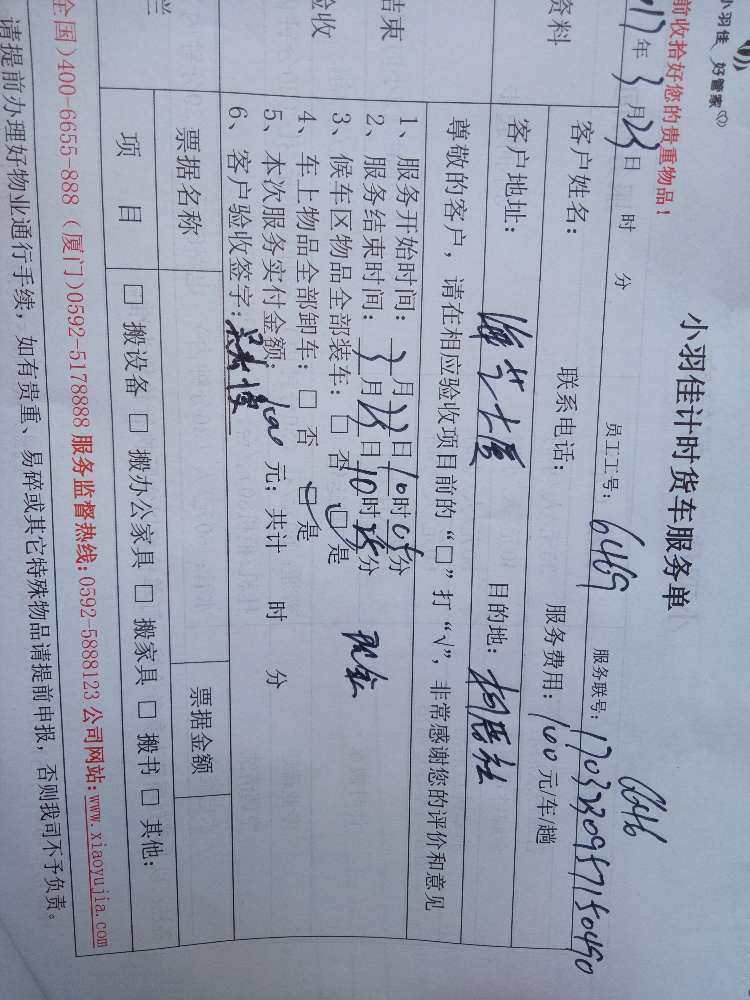 小羽佳 好管家
前收拾好您的贵重物品！
小羽佳计时货车服务单
17年3月23日 时 分 员工工号：6469 服务联号：
资料
客户姓名： 联系电话： 服务费用：100元/车/趟
客户地址： 目的地：
尊敬的客户，请在相应验收项目前的“□”打“√”，非常感谢您的评价和意见
结束
验收
1、服务开始时间：3月23日10时05分
2、服务结束时间：3月23日10时25分
3、候车区物品全部装车：□ 否 □ 是 现金
4、车上物品全部卸车：□ 否 □ 是
5、本次服务实付金额：100元；共计 时 分
6、客户验收签字：
栏
票据名称 票据金额
项 目 □ 搬设备 □ 搬办公家具 □ 搬家具 □ 搬书 □ 其他：
全国)400-6655-888 (厦门)0592-5178888 服务监督热线：0592-5888123 公司网站：www.xiaoyujia.com
请提前办理好物业通行手续，如有贵重、易碎或其它特殊物品请提前申报，否则我司不予负责。